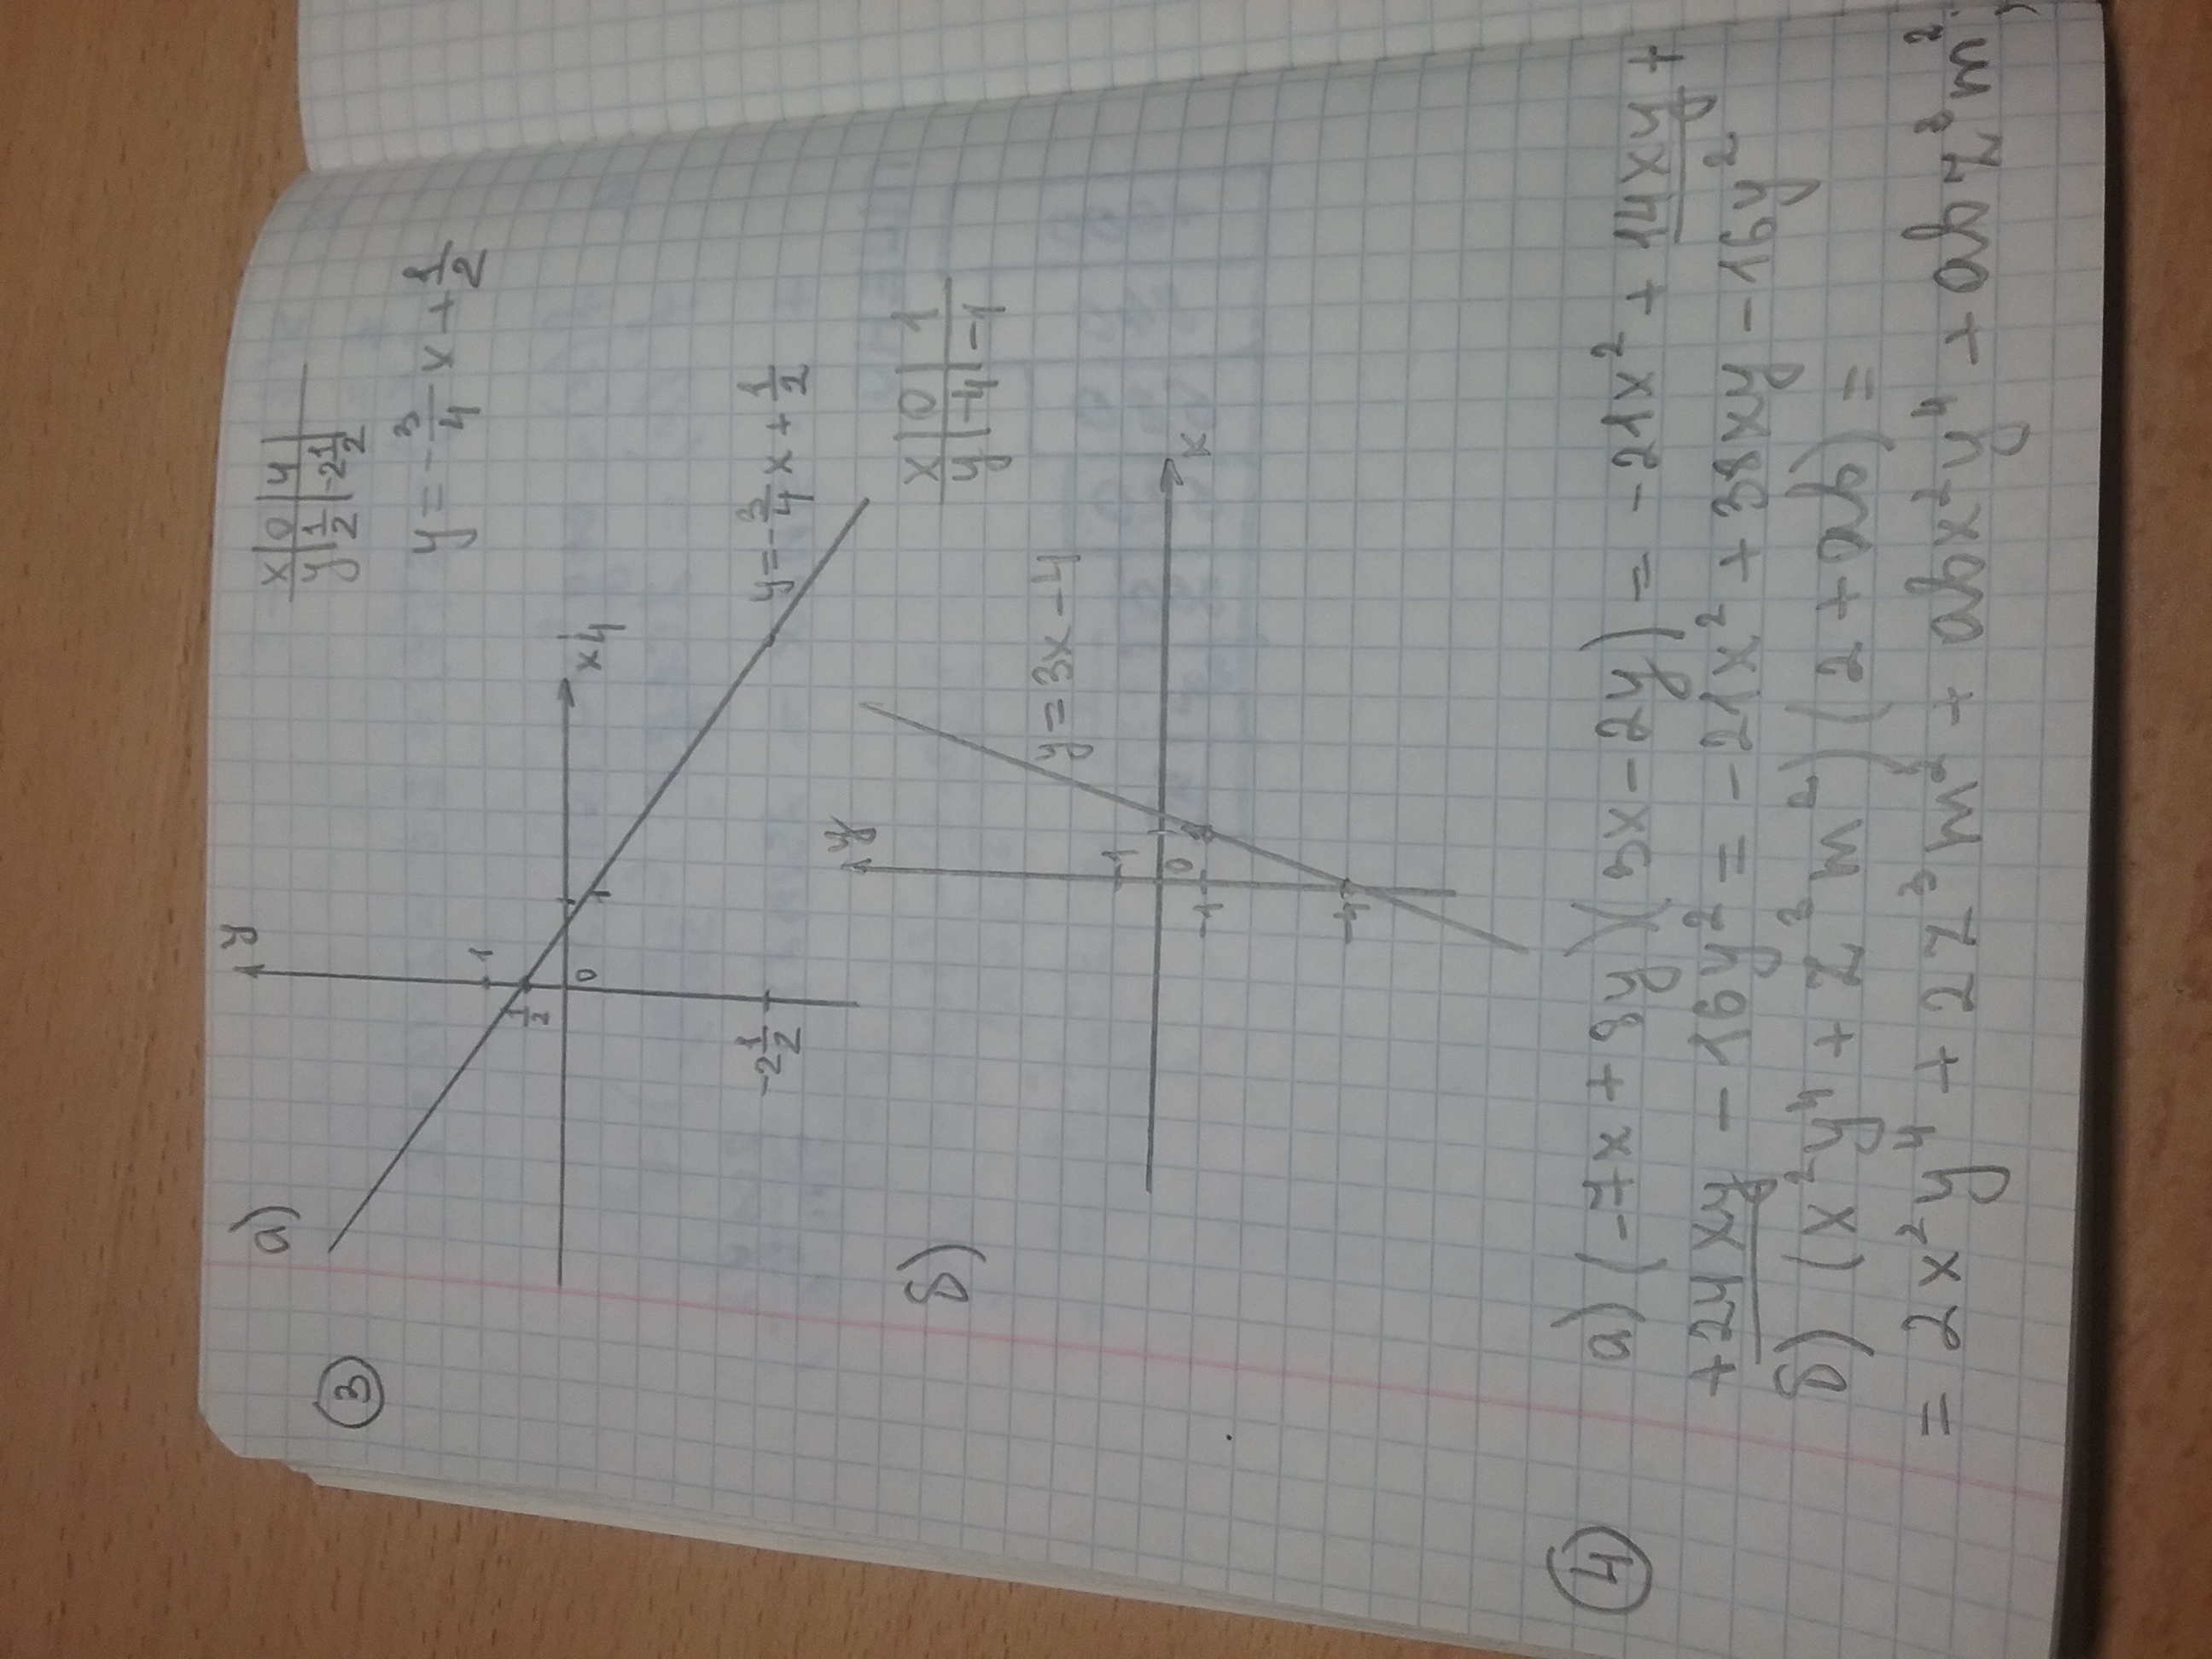 ③ а)
x | 0 | 4
y | 1/2 | -2 1/2
y = -3/4 x + 1/2
y
1
1/2
0
1
x 4
-2 1/2
y = -3/4 x + 1/2
б)
x | 0 | 1
y | -4 | -1
y = 3x - 4
y
1
0
x
-1
-4
④ а) (-7x + 8y)(3x - 2y) = -21x² + 14xy +
+24xy - 16y² = -21x² + 38xy - 16y²
б) (x²y⁴ + z³m²)(2 + ab) =
= 2x²y⁴ + 2z³m² + abx²y⁴ + abz³m²;